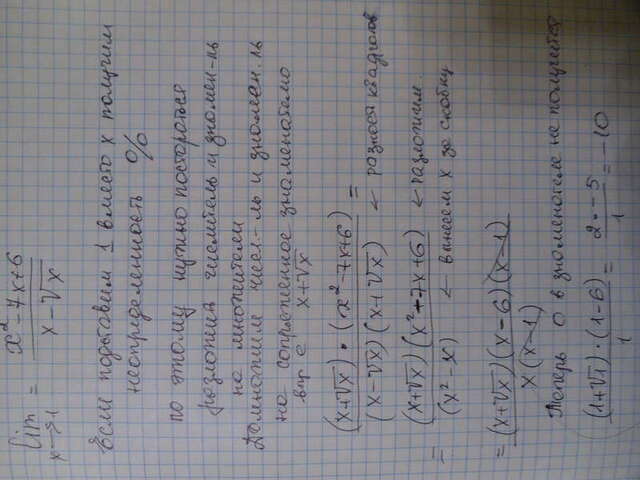 lim x→1 = x² - 7x + 6 / x - √x
Если подставим 1 вместо x получим
неопределенность 0/0
по этому нужно постораться
разложить числитель и знамен-ль
на множители
Домножим числ-ль и знамен.ль
на сопряженное знаменателю
выр е x+√x
(x+√x)·(x²-7x+6) / (x-√x)(x+√x) = ← разност квадратов
= (x+√x)(x²+7x+6) / (x²-x) ← разложим. ← вынесем x за скобку
= (x+√x)(x-6)(x-1) / x(x-1)
Теперь 0 в знаменателе не получится
(1+√1)·(1-6) / 1 = 2·-5 / 1 = -10